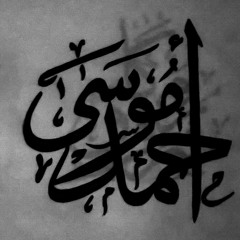 أحمد
مُوسَى